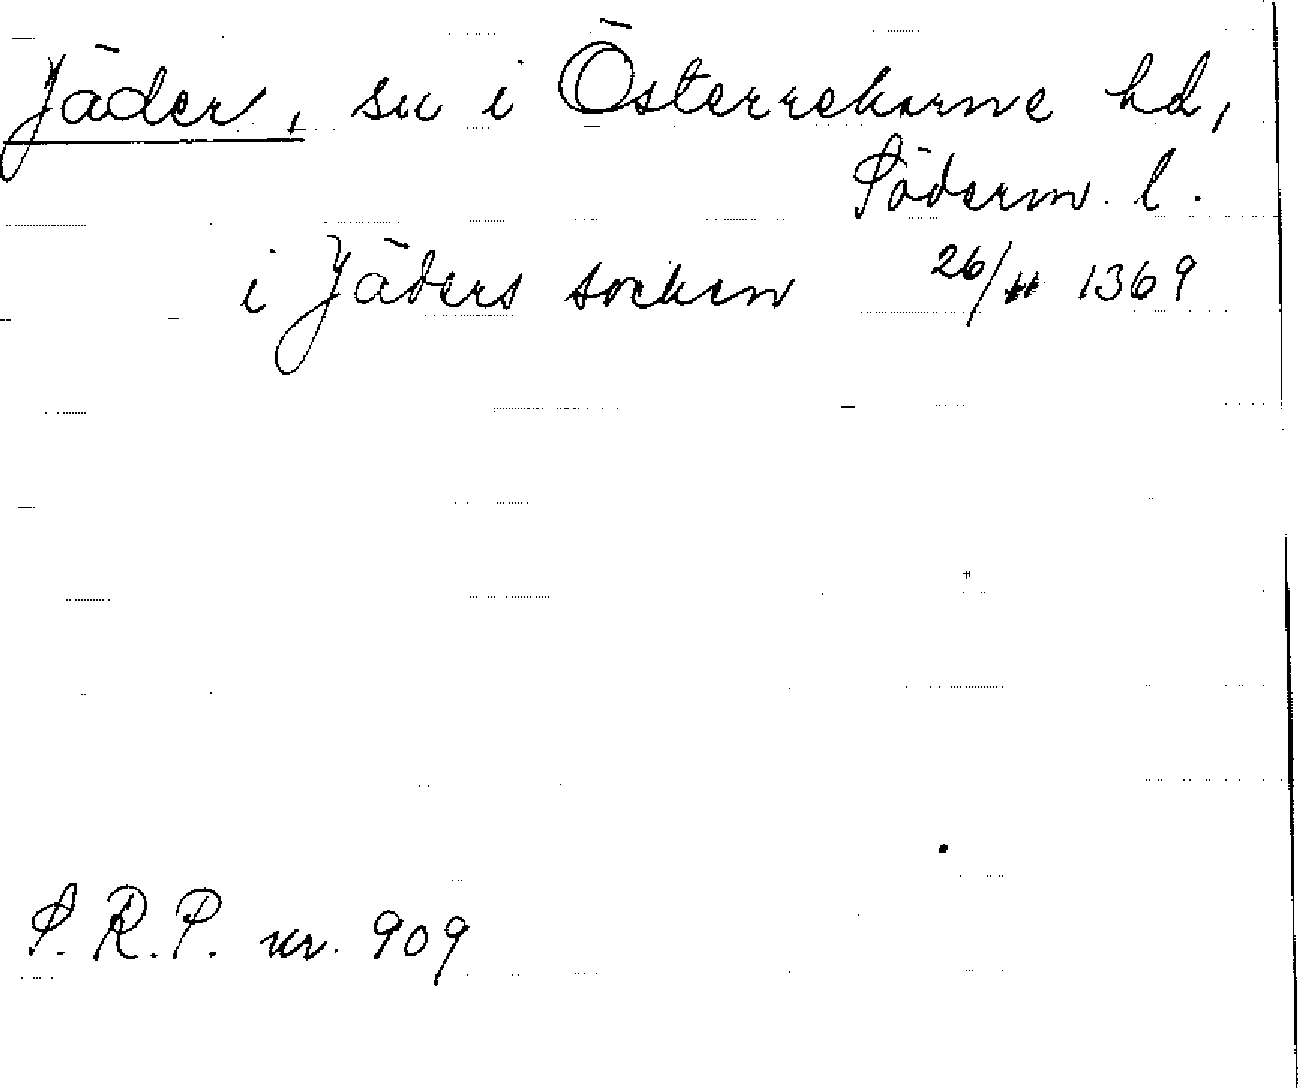 Jäder, sn i Österrekarne hd,
Söderm. l.
i Jäders socken 26/11 1369
S. R. P. nr. 909